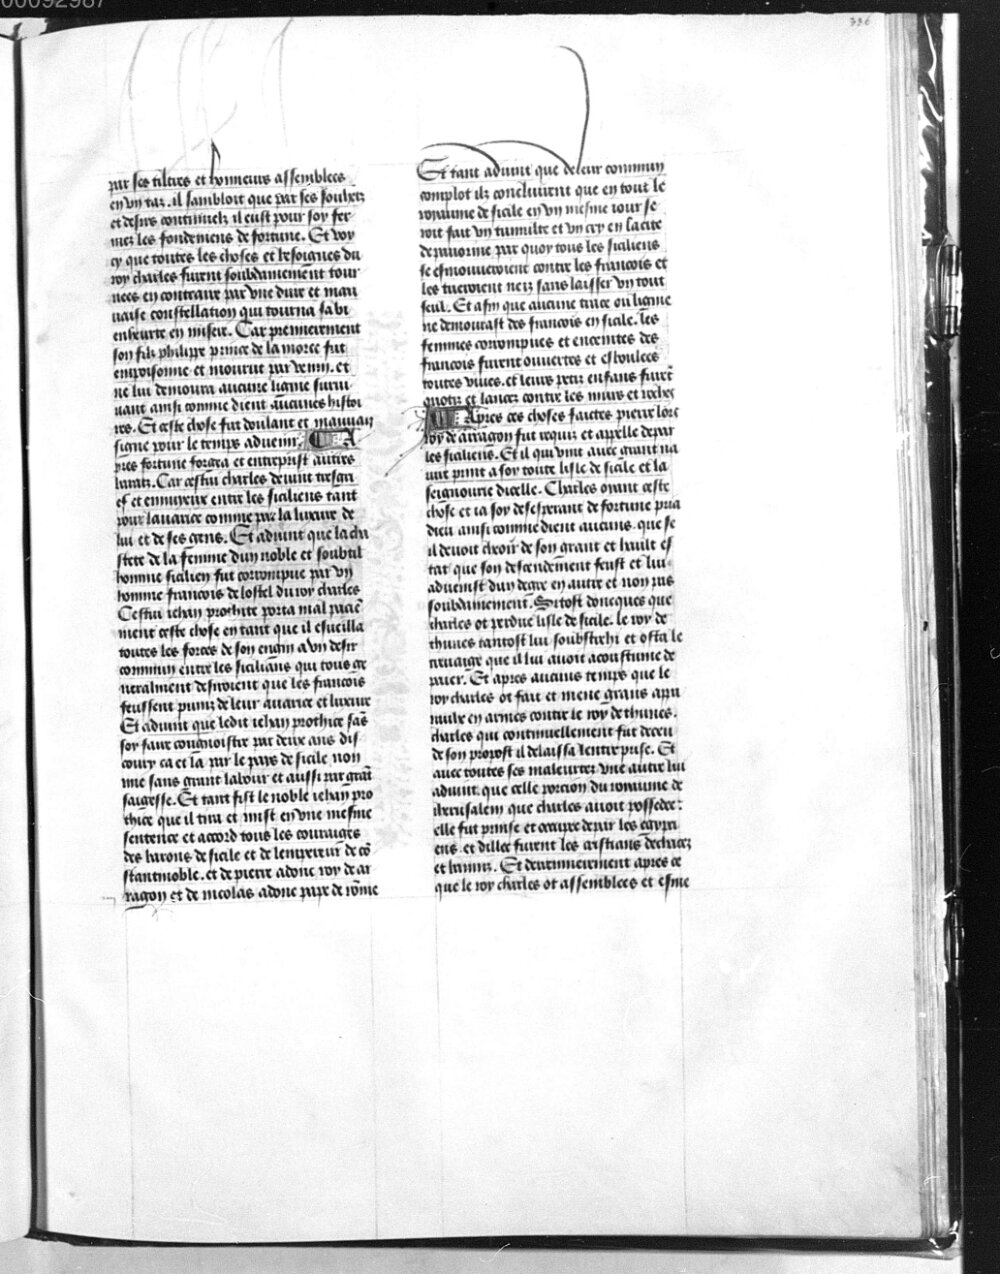 00092987
336
par ses tiltres et honneurs assemblees
en vng tas. il sambloit que par ses souhetz
et desirs continuelz il eust pour soy fer
mez les fondemens de fortune. Et voy
cy que toutes les choses et besoignes du
roy charles furent soubdainement tour
nees en contraire par vne dure et mau
uaise constellation qui tourna sa bi
eneurte en misere. Car premierement
son filz philippe prince de la moree fut
empoisonne et mourut par venin. et
ne lui demoura aucune ligne suruiu
uant ainsi comme dient aucunes histoi
res. Et ceste chose fut doulant et mauuais
signe pour le temps aduenir. A
pres fortune forgea et entreprist autres
baratz. Car cestui charles deuint tresgri
ef et ennuyeux entre les siciliens tant
pour lauarice comme par la luxure de
lui et de ses gens. Et aduint que la cha
stete de la femme dun noble et soubtil
homme sicilien fut corrompue par vn
homme francois de lostel du roy charles
Cestui iehan prochite porta mal pacie
ment ceste chose en tant que il esueilla
toutes les forces de son engin a vn desir
commun entre les sicilians qui tous ge
neralment desiroient que les francois
feussent puniz de leur auarice et luxure
Et aduint que ledit iehan prochite sãs
soy faire congnoistre par deux ans dis
couru ca et la par le pays de sicile non
mie sans grant labour et aussi par grãt
saigesse. Et tant fist le noble iehan pro
chite que il tira et mist en vne mesme
sentence et accord tous les couraiges
des barons de sicile et de lempereur de cõ
stantinoble. et de pierre adonc roy de ar
ragon et de nicolas adonc pape de rõme
Et tant aduint que de leur commun
complot ilz conclurent que en tout le
royaume de sicile en vn mesme iour se
roit fait vn tumulte et vn cry en la cite
de panorme par quoy tous les siciliens
se esmouueroient contre les francois et
les tueroient neiz sans laisser vn tout
seul. Et afin que aucune trace ou ligne
ne demourast des francois en sicile. les
femmes corrompues et enceintes des
francois furent ouuertes et esboulees
toutes viues. et leurs petiz enfans furẽt
 et lancez contre les murs et roches
Apres ces choses faictes pierre lors
roy de arragon fut requiz et appelle de par
les siciliens. Et il qui vint auec grant na
uire print a soy toute lisle de sicile et la
seignourie dicelle. Charles oyant ceste
chose et ia soy desesperant de fortune pria
dieu ainsi comme dient aucuns. que se
il deuoit cheoir de son grant et hault es
tat que son descendement feust et lui
aduenist dun degre en autre et non pas
soubdainement. Si tost doncques que
charles ot perdue lisle de sicile. le roy de
thunes tantost lui soubstrahi et osta le
treuaige que il lui auoit acoustume de
paier. Et apres aucuns temps que le
roy charles ot fait et mene grans apa
raulx en armes contre le roy de thunes.
charles qui continuellement fut deceu
de son propost il delaissa lentreprise. Et
auec toutes ses maleurtez vne autre lui
aduint. que celle porcion du royaume de
iherusalem que charles auoit possedee:
elle fut prinse et occupee de par les egypti
ens. et dillec furent les cristians dechacez
et banniz. Et derrainierement apres ce
que le roy charles ot assemblees et esme